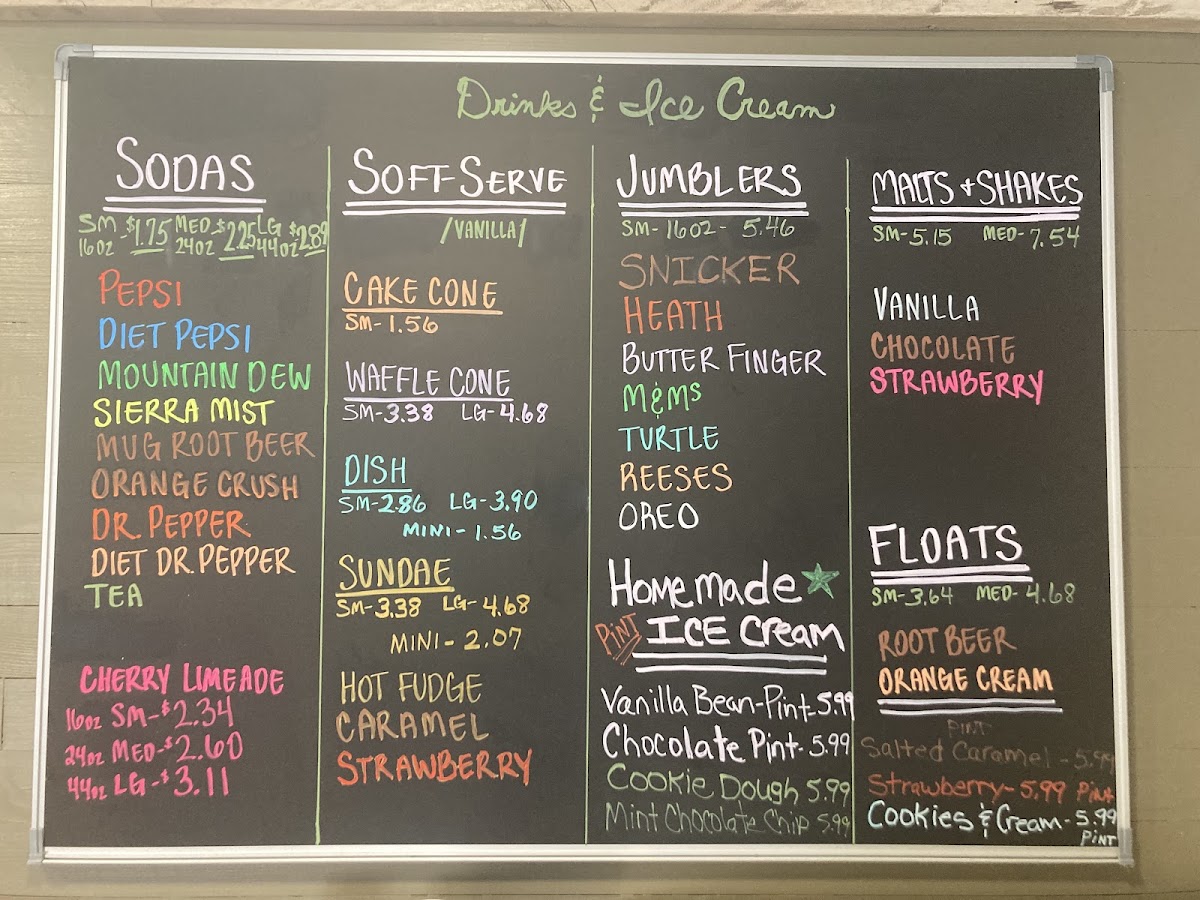 Drinks & Ice Cream
SODAS
SM -$1.75 MED -$2.25 LG $2.89
16oz 24oz 44oz
PEPSI
DIET PEPSI
MOUNTAIN DEW
SIERRA MIST
MUG ROOT BEER
ORANGE CRUSH
DR. PEPPER
DIET DR. PEPPER
TEA
CHERRY LIMEADE
16oz SM-$2.34
24oz MED-$2.60
44oz LG-$3.11
SOFT-SERVE
/VANILLA/
CAKE CONE
SM-1.56
WAFFLE CONE
SM-3.38 LG-4.68
DISH
SM-2.86 LG-3.90
MINI-1.56
SUNDAE
SM-3.38 LG-4.68
MINI-2.07
HOT FUDGE
CARAMEL
STRAWBERRY
JUMBLERS
SM-16OZ-5.46
SNICKER
HEATH
BUTTER FINGER
M&Ms
TURTLE
REESES
OREO
Homemade
PINT ICE Cream
Vanilla Bean-Pint-5.99
Chocolate Pint-5.99
Cookie Dough 5.99
Mint Chocolate Chip 5.99
MALTS + SHAKES
SM-5.15 MED-7.54
VANILLA
CHOCOLATE
STRAWBERRY
FLOATS
SM-3.64 MED-4.68
ROOT BEER
ORANGE CREAM
PINT
Salted Caramel-5.99
Strawberry-5.99 Pint
Cookies & Cream-5.99
PINT